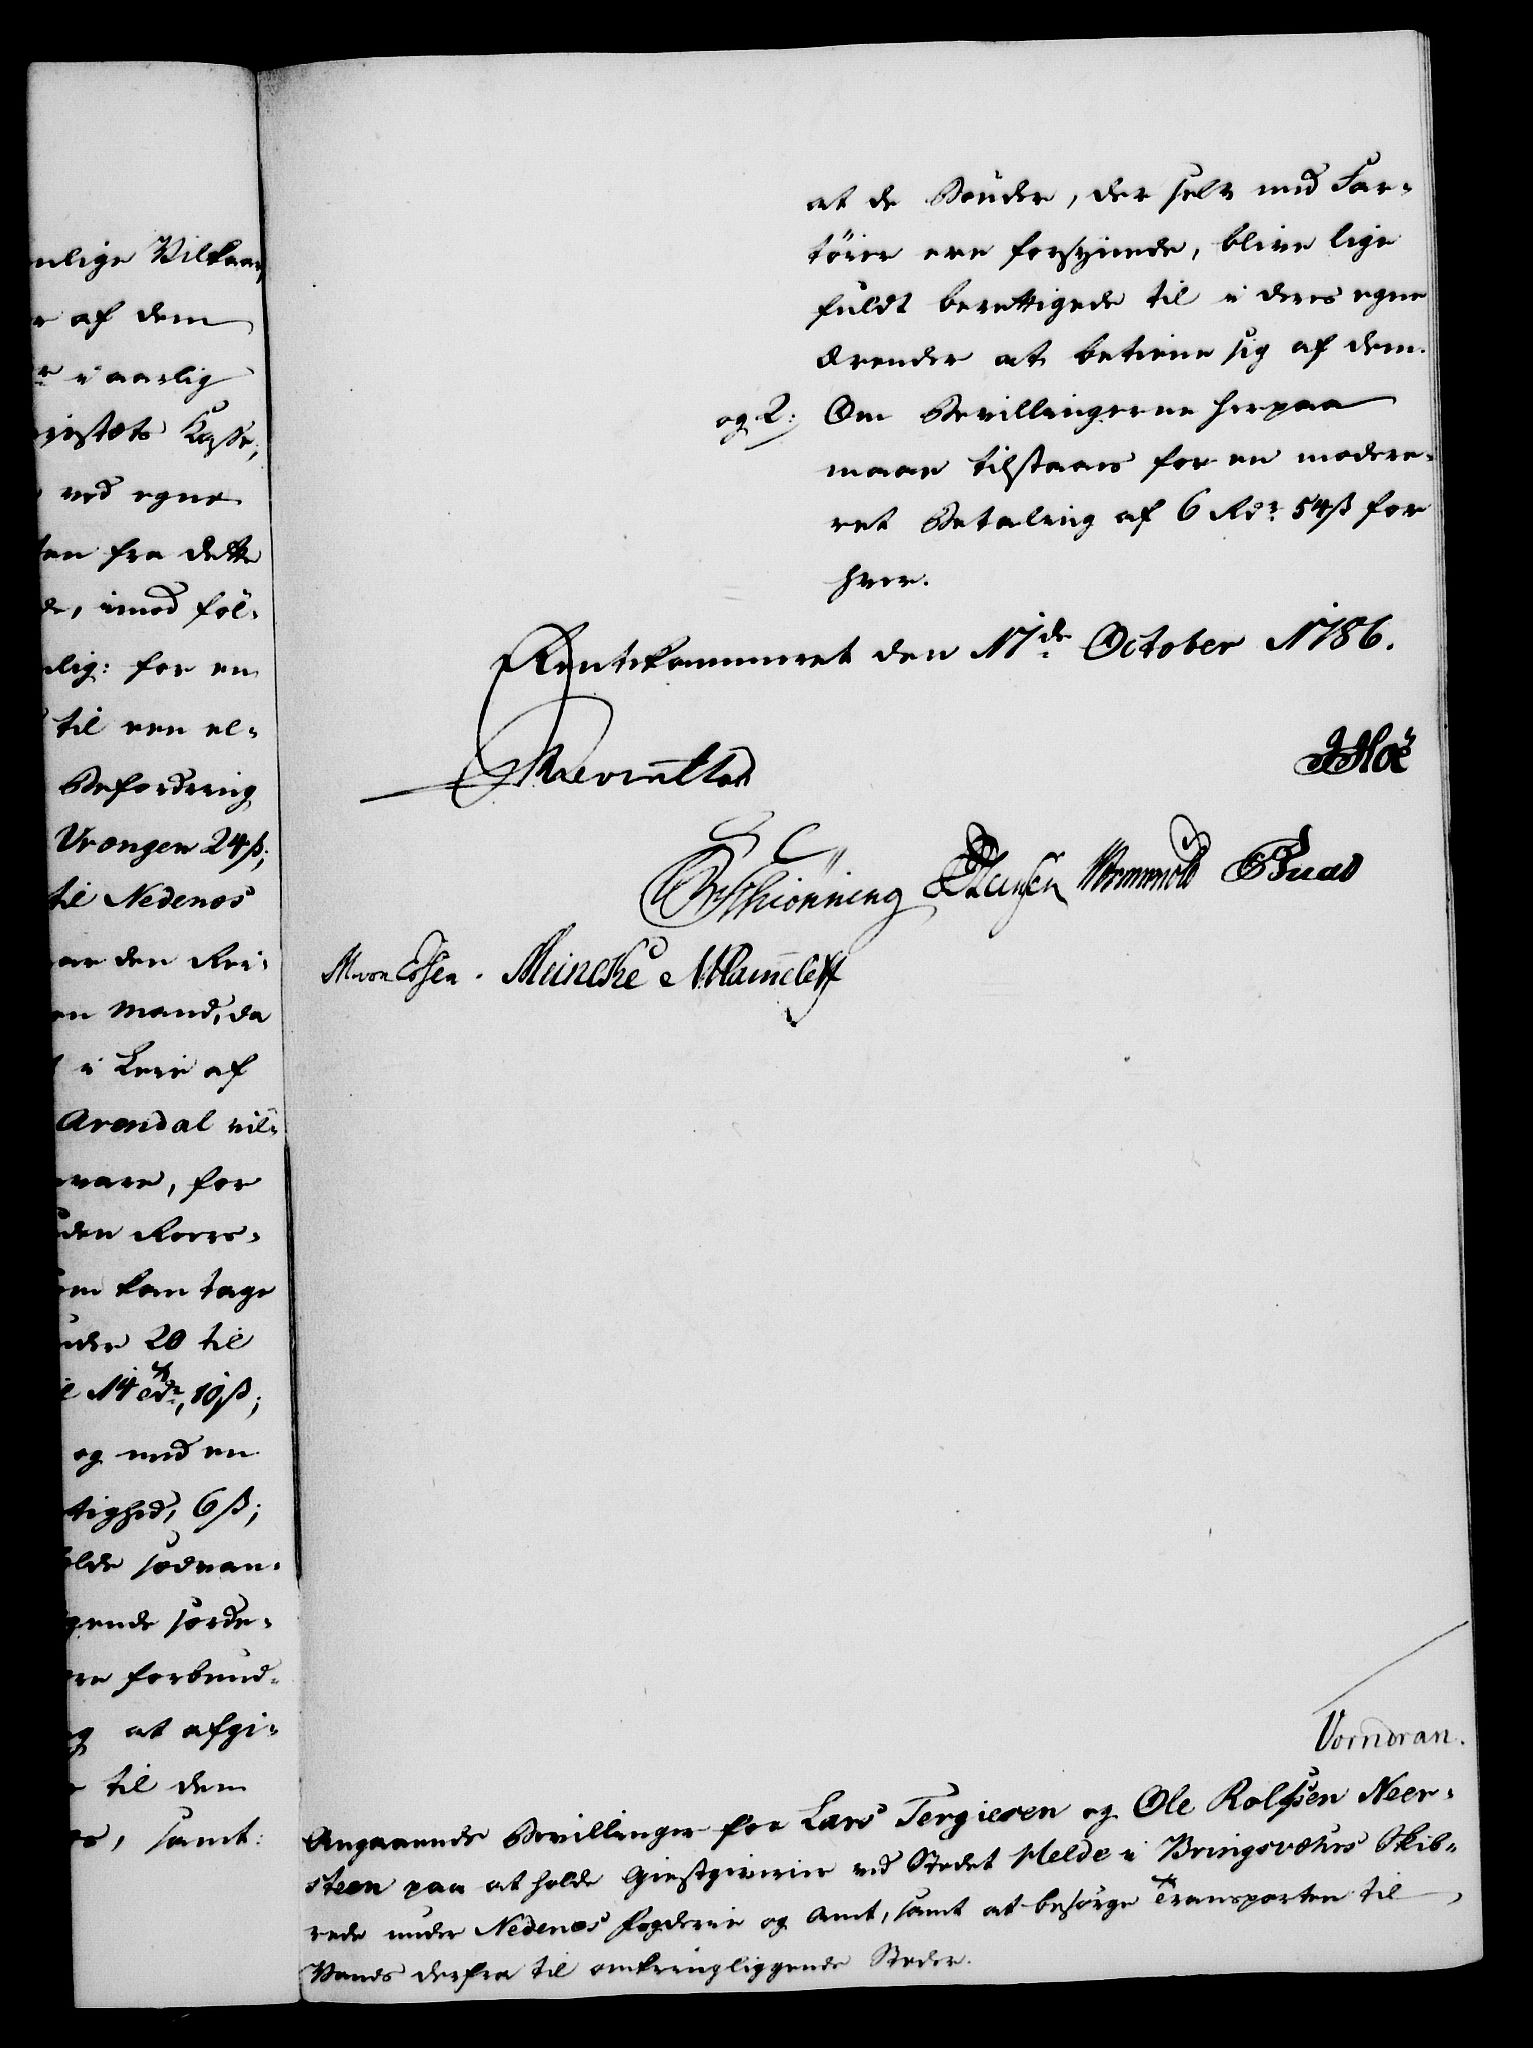 nlige Vilkaar,
r af dem
i aarlig
ristets Casse,
ved egne
ten fra dette
de, imod føl-
lig: for en
til een el-
Befordring
Vrængen 24 ß;
til Nedenæs
ar den Rei-
en Mand, da
i Leie af
Arendal vil-
vare, for
den Roers-
om kan tage
der 20 til
14 Rdr, 10 ß;
og med en
tighed, 6 ß;
olde sædvan-
gende forde-
re forbund-
g at afgi-
til dem
es, samt:
at de Bønder, der selv med Far-
tøier ere forsynede, blive lige
fuldt berettigede til i deres egne
Ærender at betiene sig af dem.
og 2: Om Bevillingerne herpaa
maae tilstaaes for en modere-
ret Betaling af 6 Rdr 54 ß for
hver.
Rentekammeret den 17de October 1786.
Reventlow
JHoë
Schiönning Hansen Wormskiold Buas
M von Essen. Meincke
Vorndran.
Angaaende Bevillinger for Lars Tergiesen og Ole Rolfsen Neer-
steen paa at holde Giestgiverie ved Stedet Kelde i Bringsværs Skib-
rede under Nedenæs Fogderie og Amt, samt at besørge Transporten til
Vands derfra til omkringliggende Steder.